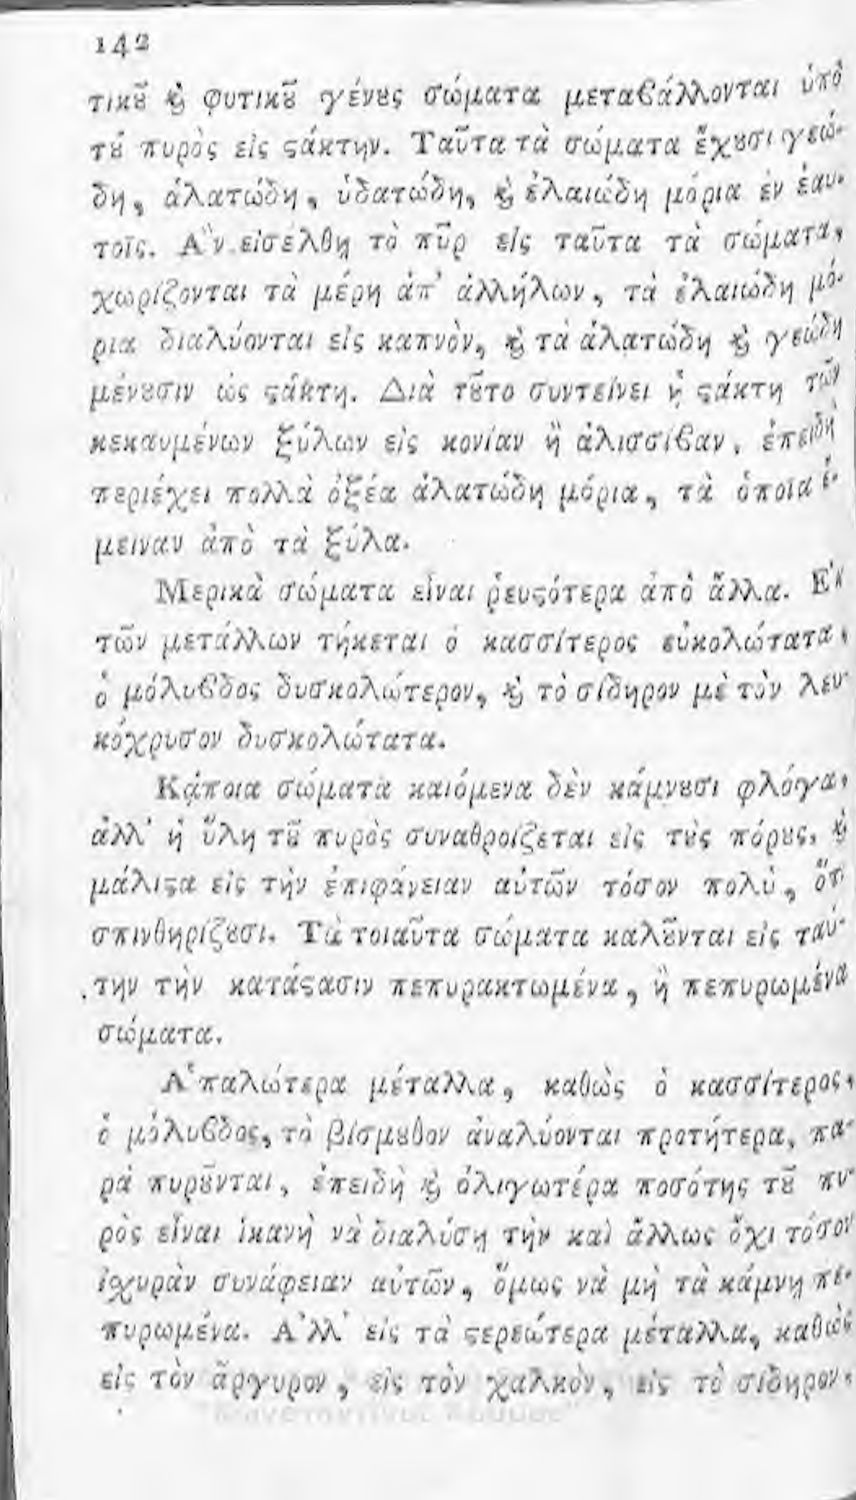 142
τικȣ͂ ϗ̀ φυτικȣ͂ γένȣς σώματα μεταϐάλλονται ὑπὸ
τȣ͂ πυρὸς εἰς ϛάκτην. Ταῦτα τὰ σώματα ἔχȣσι γεώ-
δη, ἁλατώδη, ὑδατώδη, ϗ̀ ἐλαιώδη μόρια ἐν ἑαυ-
τοῖς. Ἂν εἰσέλθῃ τὸ πῦρ εἰς ταῦτα τὰ σώματα,
χωρίζονται τὰ μέρη ἀπ' ἀλλήλων, τὰ ἐλαιώδη μό-
ρια διαλύονται εἰς καπνὸν, ϗ̀ τὰ ἁλατώδη ϗ̀ γεώδη
μένȣσιν ὡς ϛάκτη. Διὰ τȣ͂το συντείνει ἡ ϛάκτη τῶν
κεκαυμένων ξύλων εἰς κονίαν ἢ ἀλισσίϐαν, ἐπειδὴ
περιέχει πολλὰ ὀξέα ἁλατώδη μόρια, τὰ ὁποῖα ἔ-
μειναν ἀπὸ τὰ ξύλα.
Μερικὰ σώματα εἶναι ῥευϛότερα ἀπὸ ἄλλα. Ἐκ
τῶν μετάλλων τήκεται ὁ κασσίτερος εὐκολώτατα,
ὁ μόλυϐδος δυσκολώτερον, ϗ̀ τὸ σίδηρον μὲ τὸν λευ-
κόχρυσον δυσκολώτατα.
Κᾴποια σώματα καιόμενα δὲν κάμνȣσι φλόγα,
ἀλλ' ἡ ὕλη τȣ͂ πυρὸς συναθροίζεται εἰς τȣ̀ς πόρȣς, ϗ̀
μάλιϛα εἰς τὴν ἐπιφάνειαν αὐτῶν τόσον πολὺ, ὅτι
σπινθηρίζȣσι. Τὰ τοιαῦτα σώματα καλȣ͂νται εἰς ταύ-
την τὴν κατάϛασιν πεπυρακτωμένα, ἢ πεπυρωμένα
σώματα.
Ἁπαλώτερα μέταλλα, καθὼς ὁ κασσίτερος,
ὁ μόλυϐδος, τὸ βίσμȣθον ἀναλύονται προτήτερα, πα-
ρὰ πυρȣ͂νται, ἐπειδὴ ϗ̀ ὀλιγωτέρα ποσότης τȣ͂ πυ-
ρὸς εἶναι ἱκανὴ νὰ διαλύσῃ τὴν καὶ ἄλλως ὄχι τόσον
ἰσχυρὰν συνάφειαν αὐτῶν, ὅμως νὰ μὴ τὰ κάμνῃ πε-
πυρωμένα. Ἀλλ' εἰς τὰ ϛερεώτερα μέταλλα, καθὼς
εἰς τὸν ἄργυρον, εἰς τὸν χαλκὸν, εἰς τὸ σίδηρον,